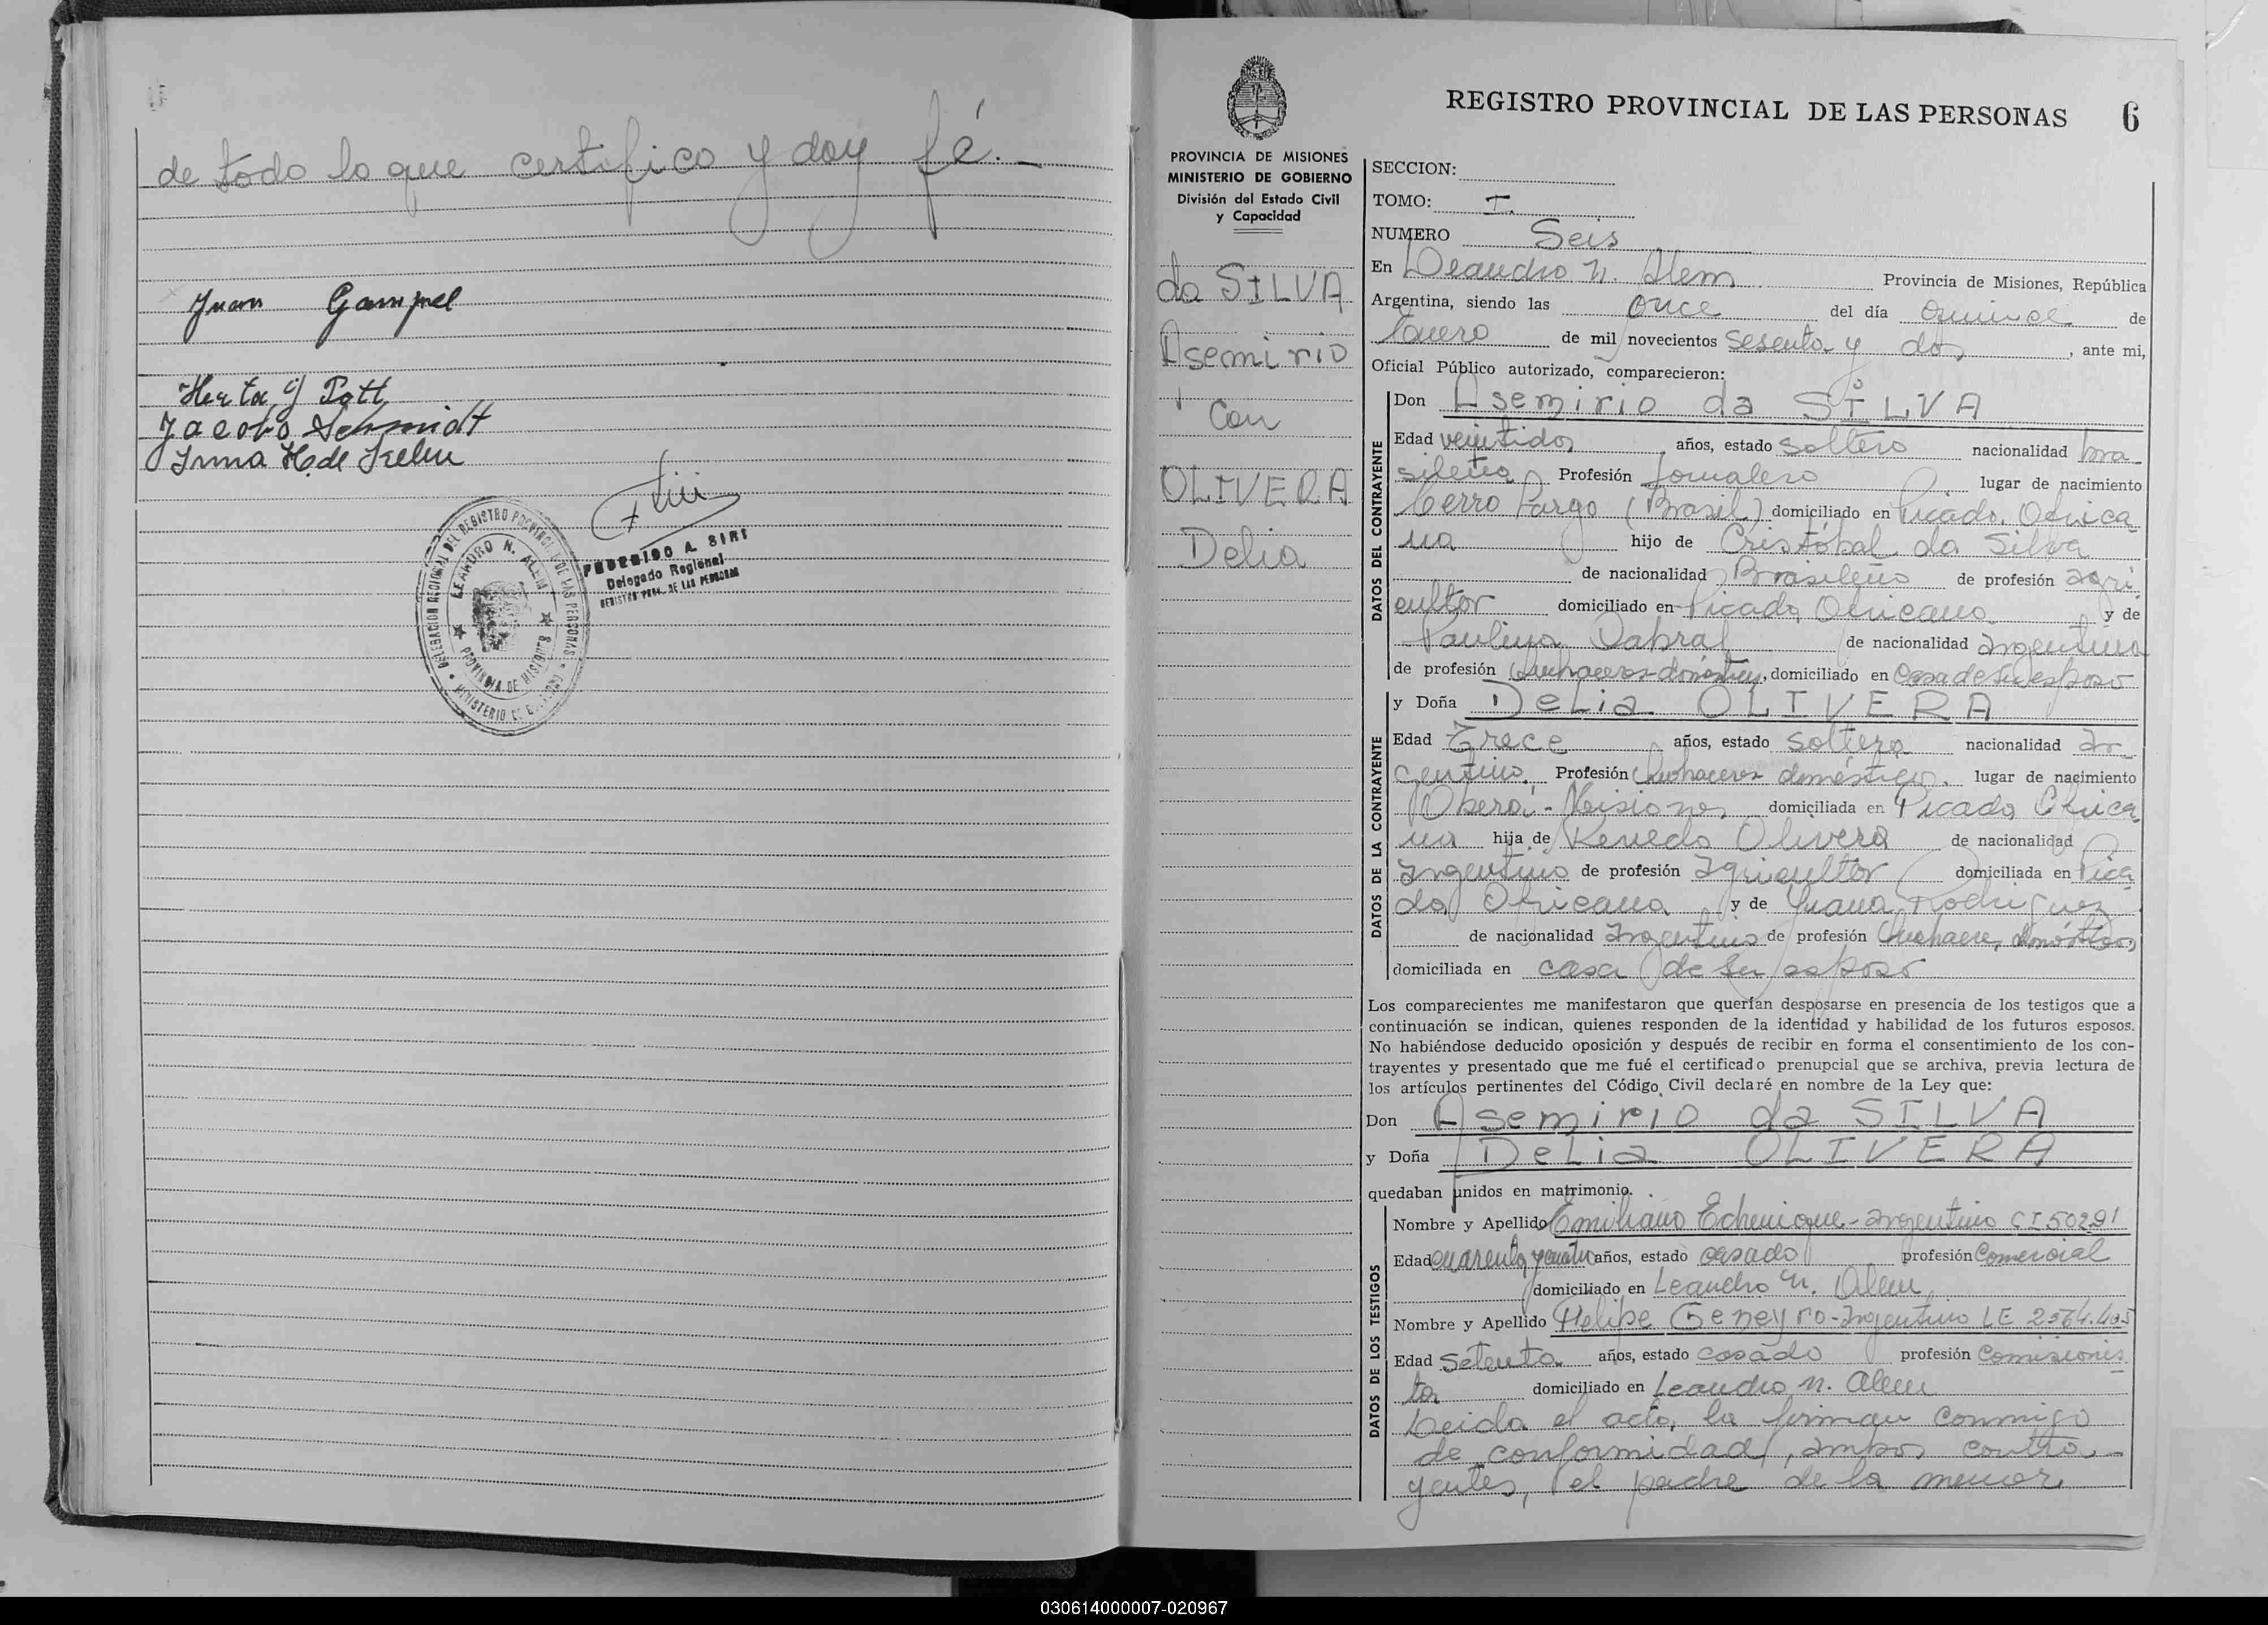 de todo lo que certifico y doy fé.
Juan Gampel
Herta G Patt
Jacobo Schmidt
Irma H. de
DELEGACION REGIONAL DEL REGISTRO PROVINCIAL DE LAS PERSONAS
LEANDRO N. ALEM
PROVINCIA DE MISIONES
MINISTERIO DE GOBIERNO
FEDERICO A. SIRI
Delegado Regional
REGISTRO PROV. DE LAS PERSONAS
PROVINCIA DE MISIONES
MINISTERIO DE GOBIERNO
División del Estado Civil
y Capacidad
da SILVA
Asemirio
Con
OLIVERA
Delia
REGISTRO PROVINCIAL DE LAS PERSONAS 6
SECCION:
TOMO: I.
NUMERO Seis
En Leandro N. Alem Provincia de Misiones, República
Argentina, siendo las once del día quince de
Enero de mil novecientos sesenta y dos, ante mi,
Oficial Público autorizado, comparecieron:
DATOS DEL CONTRAYENTE
Don Asemirio da SILVA
Edad veintidos años, estado soltero nacionalidad bra-
sileña Profesión Jornalero lugar de nacimiento
Cerro Largo (Brasil) domiciliado en Picada Africa
na hijo de Cristóbal da Silva
de nacionalidad Brasileño de profesión agri
cultor domiciliado en Picada Africana y de
Paulina Cabral de nacionalidad argentina
de profesión Quehaceres domésticos, domiciliado en Casa de su esposo
DATOS DE LA CONTRAYENTE
y Doña Delia OLIVERA
Edad Trece años, estado soltera nacionalidad ar
gentina. Profesión Quehaceres domésticos. lugar de nacimiento
Oberá - Misiones domiciliada en Picada Africa
na hija de Renedo Olivera de nacionalidad
argentino de profesión agricultor domiciliada en Pica
da Africana y de Juana Rodriguez
de nacionalidad argentina de profesión Quehaceres domésticos
domiciliada en casa de su esposo
Los comparecientes me manifestaron que querían desposarse en presencia de los testigos que a
continuación se indican, quienes responden de la identidad y habilidad de los futuros esposos.
No habiéndose deducido oposición y después de recibir en forma el consentimiento de los con-
trayentes y presentado que me fué el certificado prenupcial que se archiva, previa lectura de
los artículos pertinentes del Código Civil declaré en nombre de la Ley que:
Don Asemirio da SILVA
y Doña Delia OLIVERA
quedaban unidos en matrimonio.
DATOS DE LOS TESTIGOS
Nombre y Apellido Emiliano Echenique - argentino CI 50291
Edad cuarenta y cuatro años, estado casado profesión Comercial
domiciliado en Leandro N. Alem
Nombre y Apellido Felipe Geneyro - argentino LE 2564.405
Edad Setenta años, estado casado profesión Comisionis
ta domiciliado en Leandro N. Alem
Leida el acta, la firman conmigo
de conformidad, ambos contra-
yentes, el padre de la menor
030614000007-020967